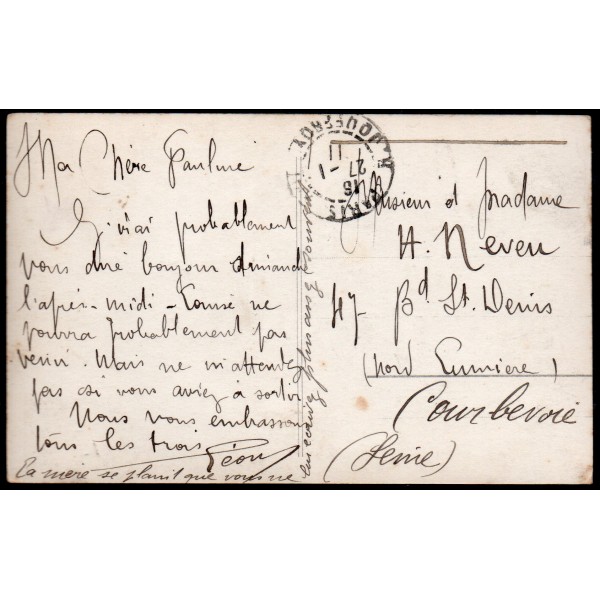 Ma Chère Pauline
J'irai probablement
vous dire bonjour dimanche
l'après-midi - Louise ne
pourra probablement pas
venir. Mais ne m'attendez
pas si vous aviez à sortir
Nous vous embrassons
tous les trois
Léon
La mère se plaint que vous ne
lui écrivez plus
PARIS
15
27 - 1
11
Monsieur et Madame
H. Neveu
47 Bd St. Denis
(Nord Lumière)
Courbevoie
(Seine)